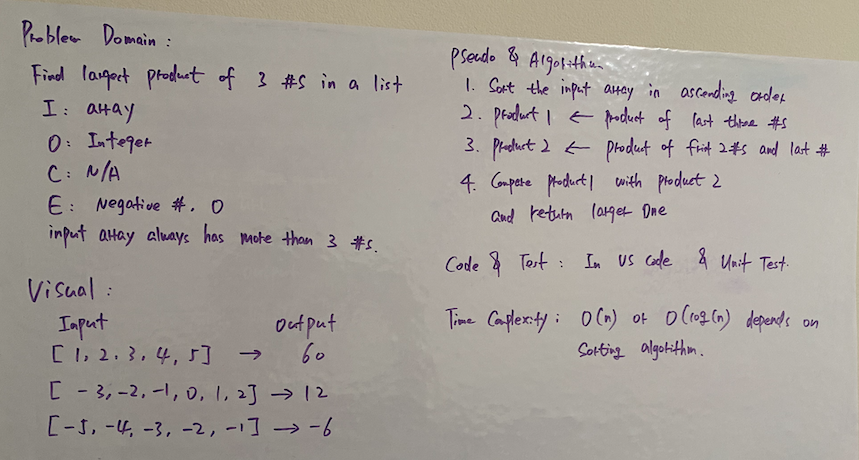 Problem Domain :
Find largest product of 3 #s in a list
I : array
O : Integer
C : N/A
E : Negative #. 0
input array always has more than 3 #s.
Visual :
Input Output
[1, 2, 3, 4, 5] → 60
[-3, -2, -1, 0, 1, 2] → 12
[-5, -4, -3, -2, -1] → -6
Pseudo & Algorithm
1. Sort the input array in ascending order
2. product 1 ← product of last three #s
3. product 2 ← product of first 2 #s and last #
4. Compare product 1 with product 2
and return larger one
Code & Test : In VS code & Unit Test.
Time Complexity : O(n) or O(log(n) depends on
Sorting algorithm.